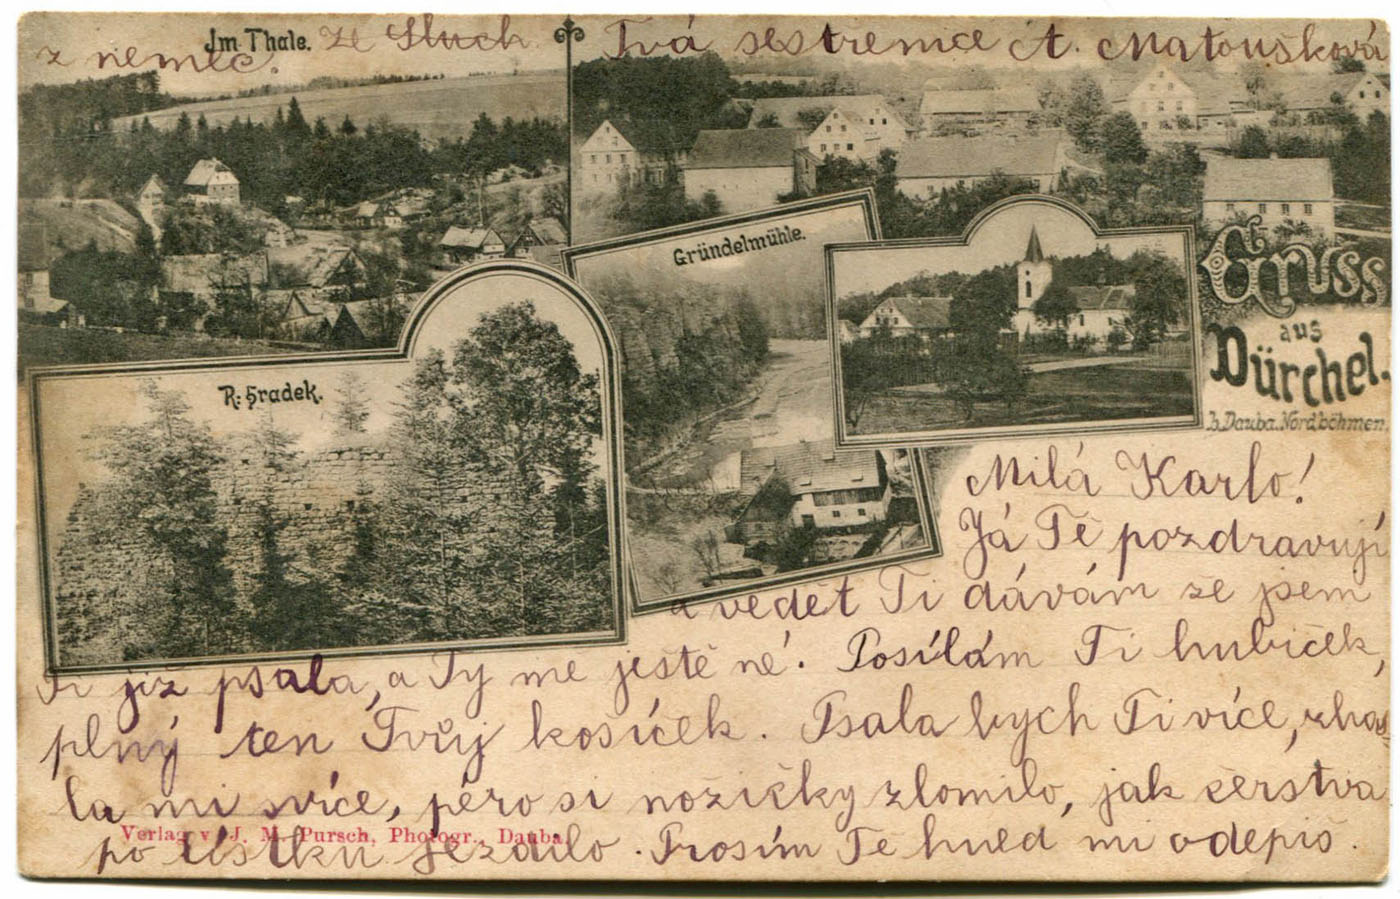 Im Thale.
Gründelmühle.
R: Hradek.
Gruss
aus
Dürchel.
b. Dauba. Nordböhmen.
Milá Karlo!
Já Tě pozdravují
a vedět Ti dávám ze jsem
Ti již psala, a Ty mě ještě né! Posílám Ti hubiček,
plný ten Tvůj kosíček. Psala bych Ti více, zhas=
la mi svíce, péro si nožičky zlomilo, jak čerstva
po lístku jezdilo. Prosím Tě hned mi odepiš.
Tvá sestřenice A. Matoušková
ze Sluch
z němec.
Verlag v. J. M. Pursch, Photogr., Dauba.